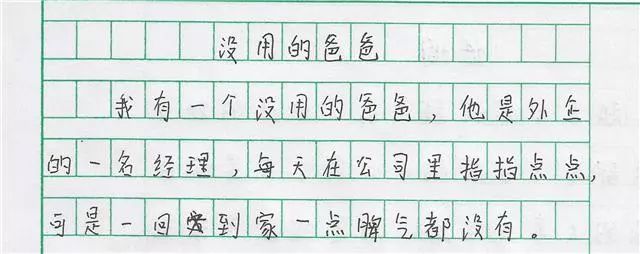 没用的爸爸
我有一个没用的爸爸，他是外企
的一名经理，每天在公司里指指点点，
可是一回到家一点脾气都没有。